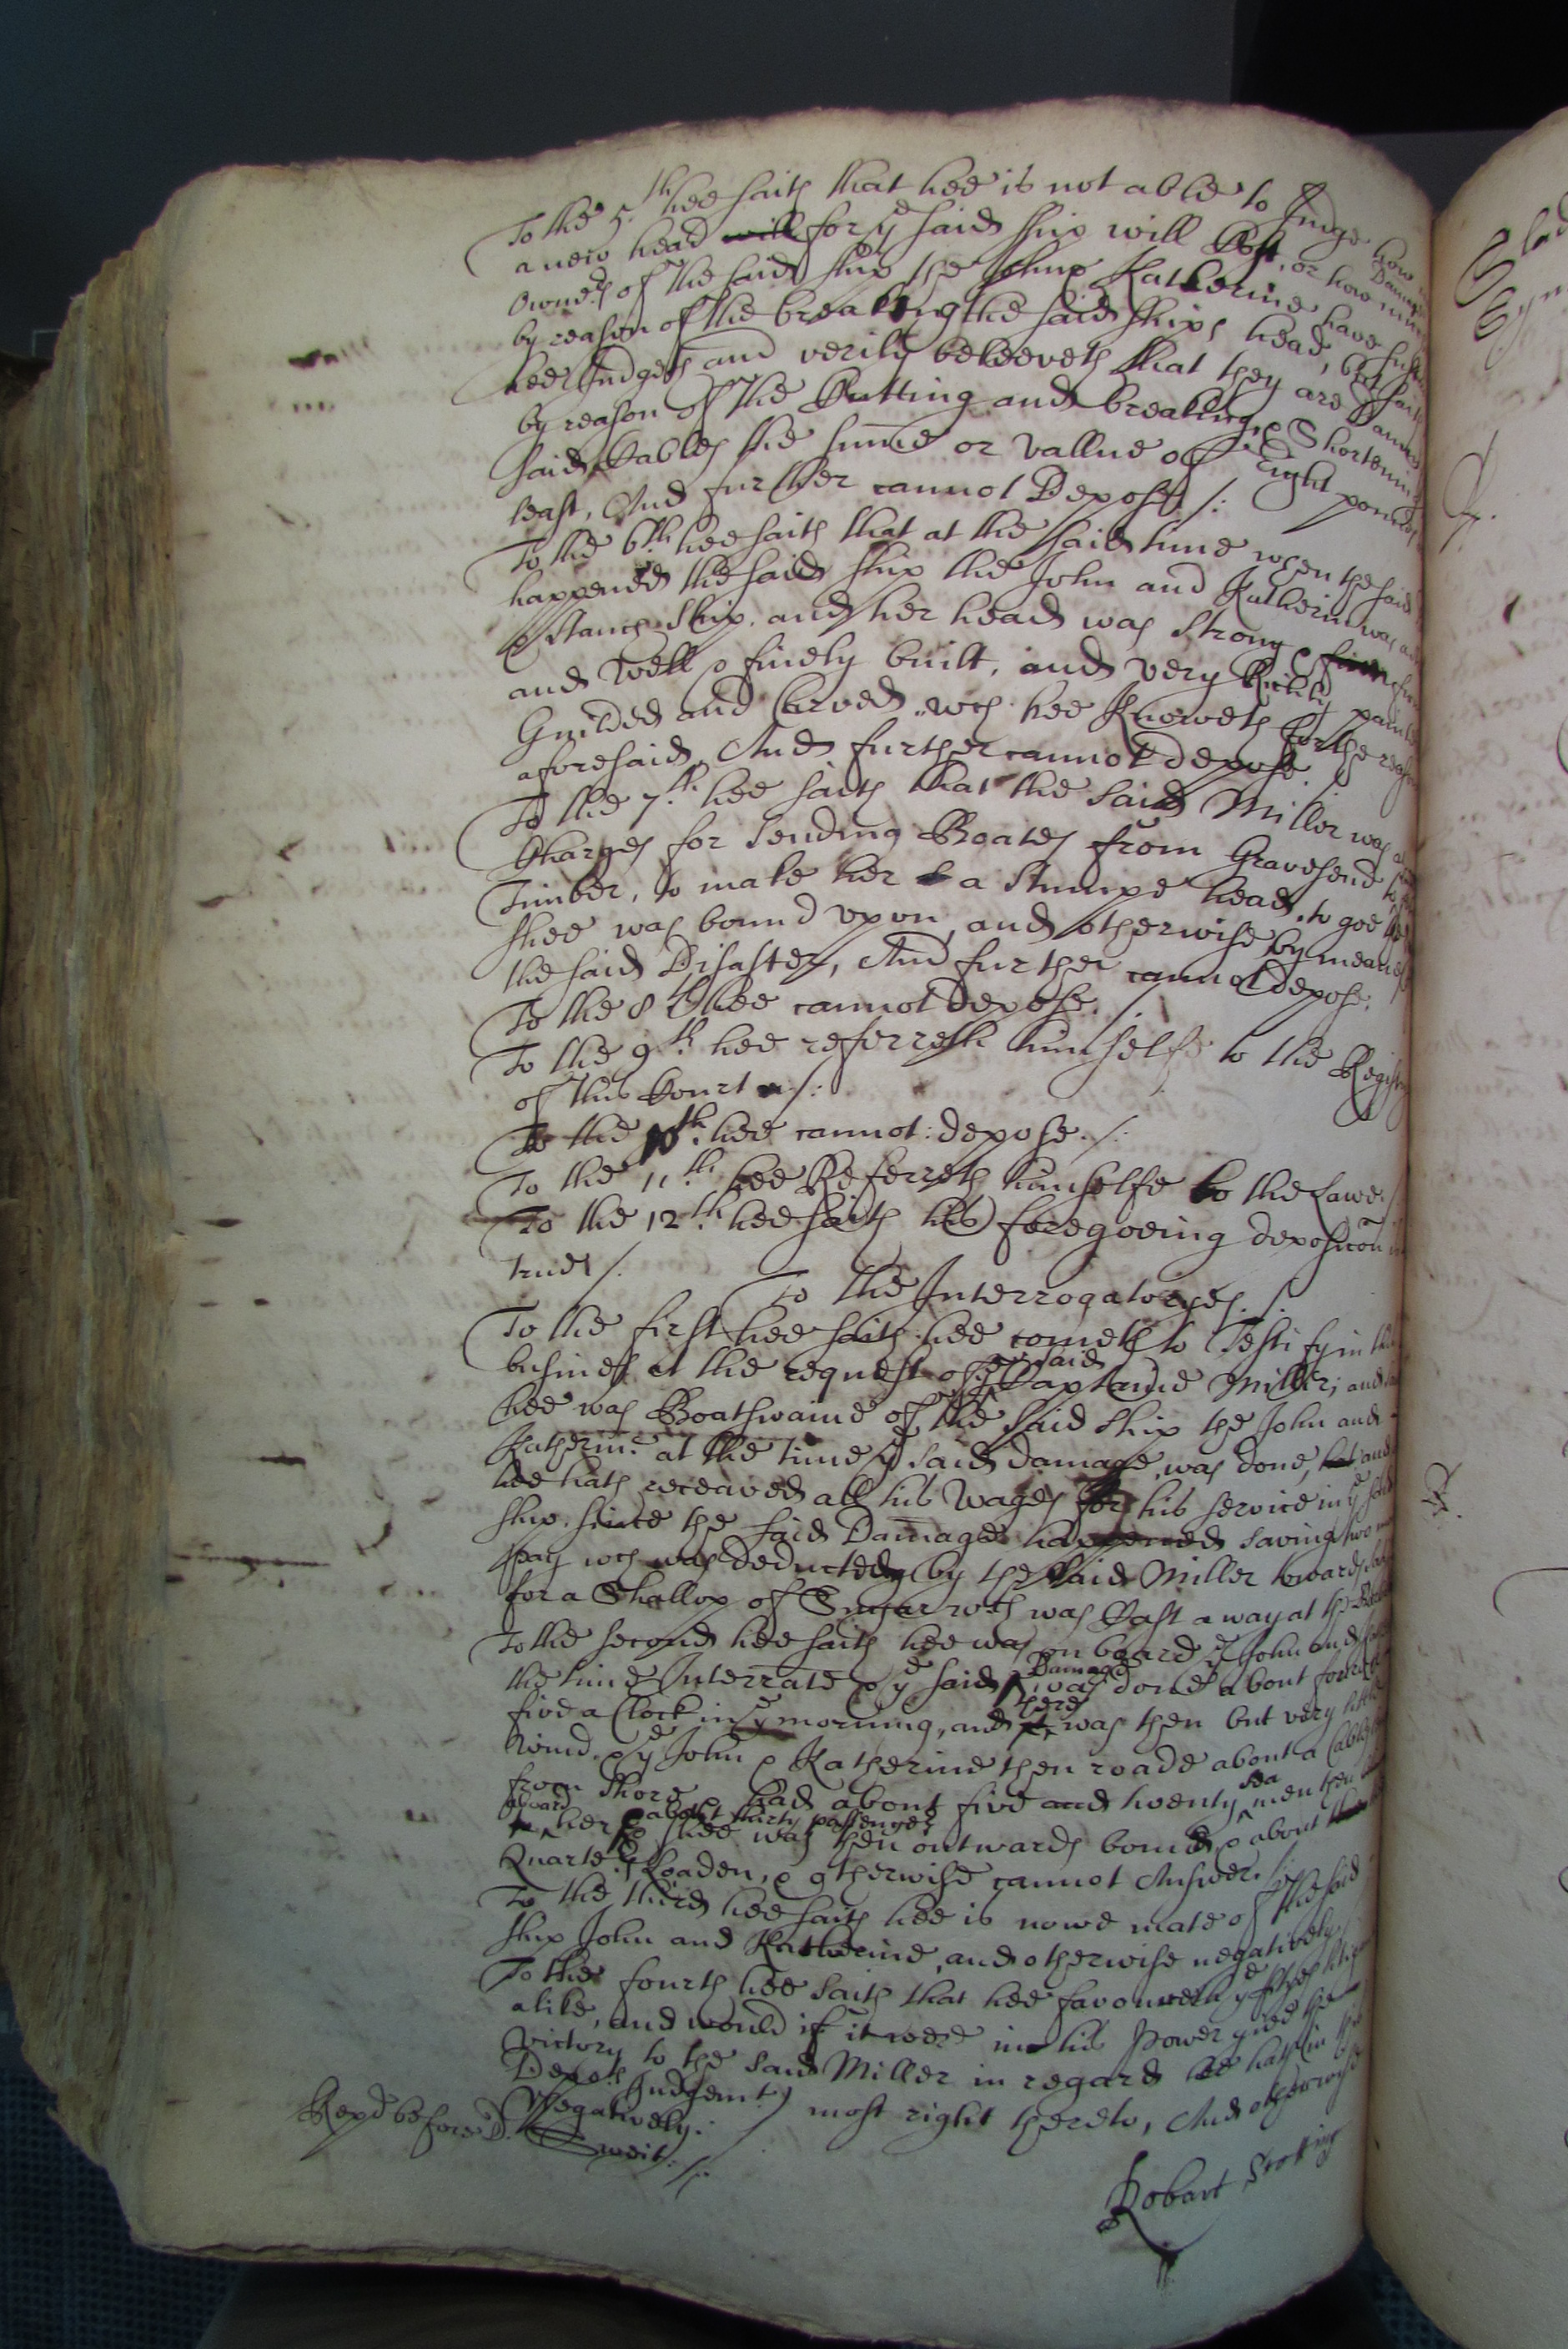 To the 5th. hee saith that hee is not able to Judge how
a new head will for ye said ship will Cost, or how much Damage
Owne:rs of the said ship the John & Katherine have
by reason of the breaking the said ships head, but saith
hee Judgeth and verily beleeveth that they are
by reason of the Cutting and breaking, & Shortening
said Cables the summe or vallue of Eight pounds
least, And further cannot Depose ./:
To the 6th. hee saith that at the said time when the said
happened the said ship the John and Katherin was
& Stanch Ship. and her head was Strong &
and Well & finely built, and very Richly
Guilded and Carved. wch hee Knoweth for the
aforesaid, And further cannot depose ./
To the 7th. hee saith that the said Miller was at
Charges for sending Boates from Gravesend to
Timber, to make her a Stumpe head, to goe the
shee was bound upon, and otherwise by meanes
the said Disaster, And further cannot depose:
To the 8th hee cannot depose. /.
To the 9th. hee referreth himselfe to the Registry
of this Court ./:
To the 10th. hee cannot: depose ./:
To the 11th. hee Referreth himselfe to the Lawe /
To the 12th. hee saith his foregoeing deposicon is
true ./:
To the Interrogatoryes. /.
To the first hee saith hee cometh to Testify in this
busines at the request of ye said Captaine Miller; and
hee was Boatswaine of the said ship the John and
Katherine at the time ye said damage was done, and
hee hath receaved all his Wages for his service in ye said
ship. since the said Damage happened saving two
pay wch was deducted by the said Miller towards
for a Shallop of Sugar wch was Cast away at the
To the second hee saith hee was on board ye John and
the time Interrate & ye said Damage was done about foure or
five a Clock in ye morning, and there was then but very little
Wind. & ye John & Katherine then roade about a Cables
from shore & had about five and twenty sea men then
aboard her & about thirty passengers & shee was then outwards bound, & about
Quarters Loaden, & otherwise cannot Answer. /:
To the third hee saith hee is nowe mate of the said
ship John and Katherine, and otherwise negatively
To the fourth hee saith that hee favoureth ye
alike, and would if it were in his Power give the
victory to the said Miller in regard he hath in this
Depots Judgemt. most right thereto, And otherwise
Negatively. /
Repd before Dr. Sweit: /:
Robart Stotting